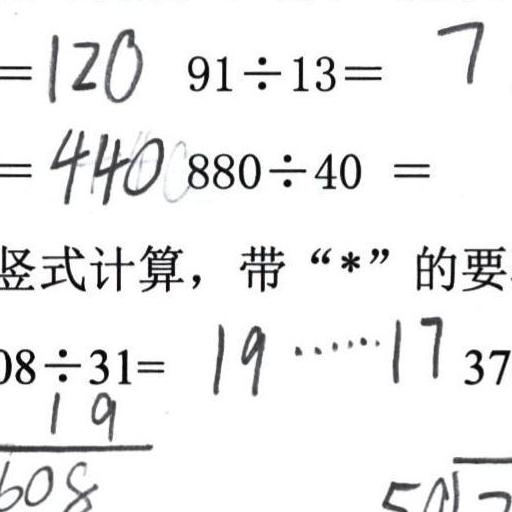 =120 91÷13= 7
=440 880÷40 =
竖式计算，带“*”的要
08÷31= 19……17 37
19
608
50